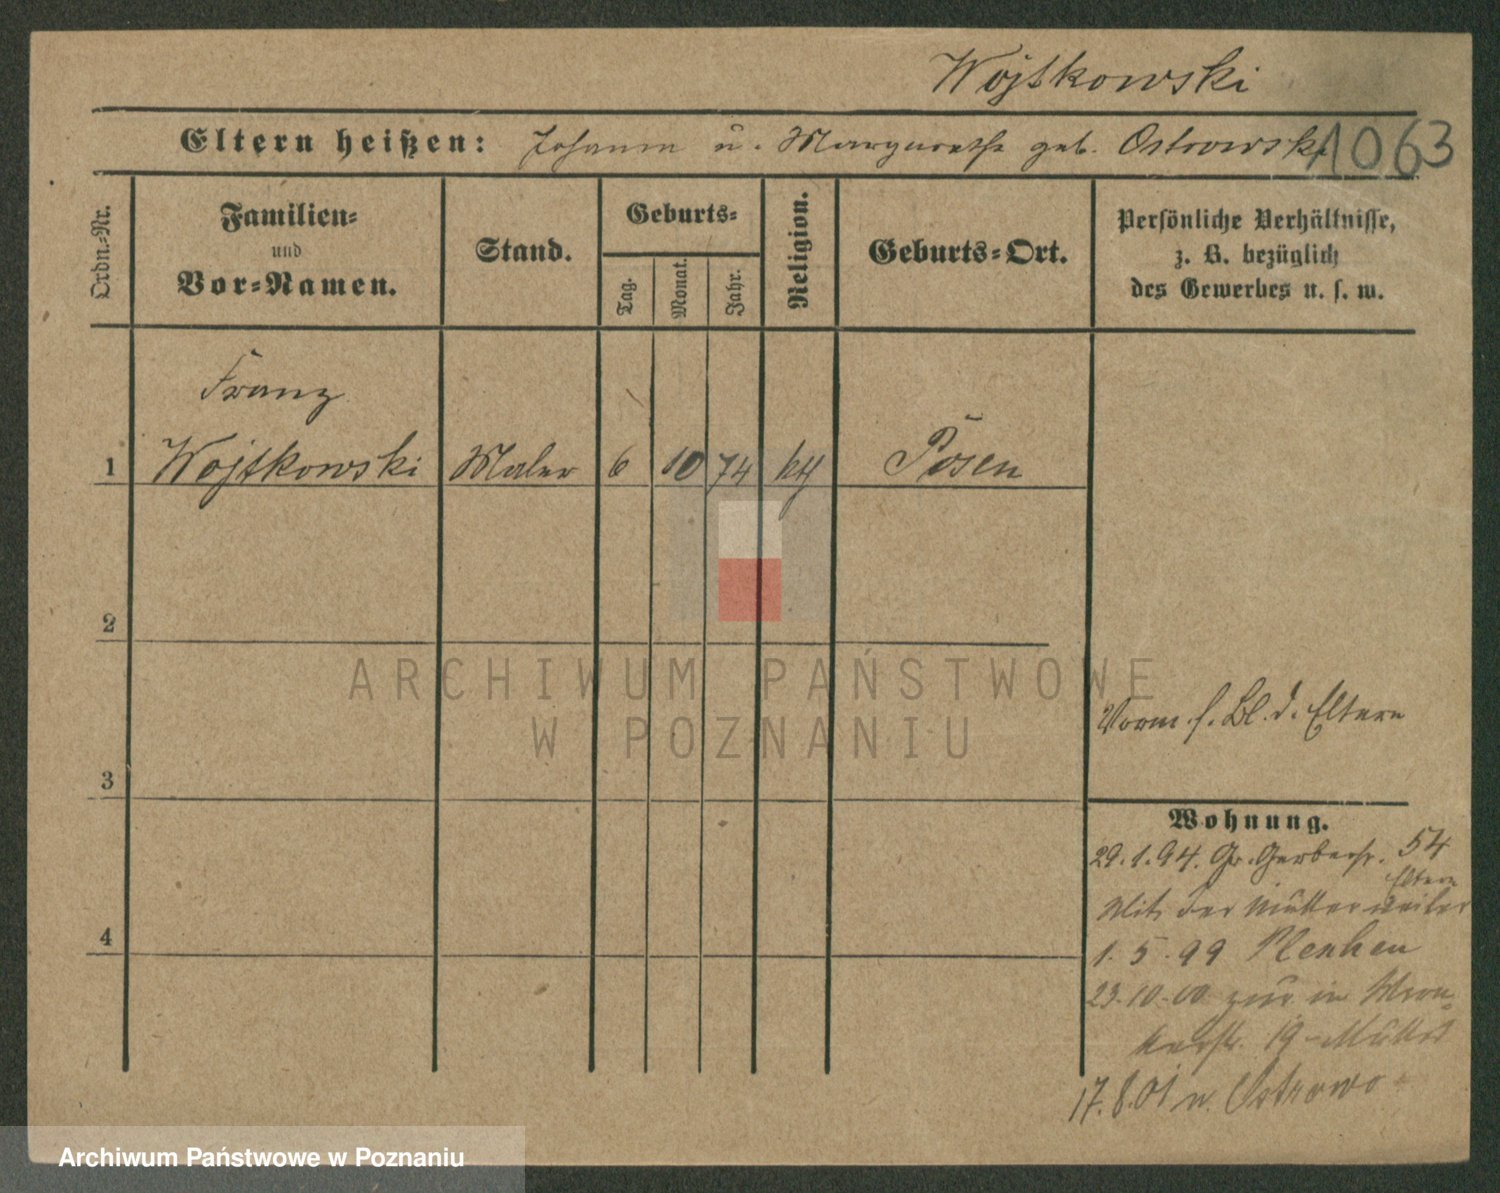 Wojtkowski
Eltern heißen: Johann u. Margarethe geb. Ostrowski
1063
Ordn.-Nr.
Familien-
und
Vor-Namen.
Stand.
Geburts-
Tag.
Monat.
Jahr.
Religion.
Geburts-Ort.
Persönliche Verhältnisse,
z. B. bezüglich
des Gewerbes u. s. w.
Franz
1 Wojtkowski Maler 6 10 74 kth Posen
2
3
4
Vorm. s. Bl. d. Eltern
Wohnung.
29.1.94. Gr. Gerberstr. 54
Eltern
Mit der Mutter weiter
1. 5. 99
23.10.00 zur. in Wron-
kerstr. 19 Mutter
17.8.01 n. Ostrowo
ARCHIWUM PAŃSTWOWE
W POZNANIU
Archiwum Państwowe w Poznaniu